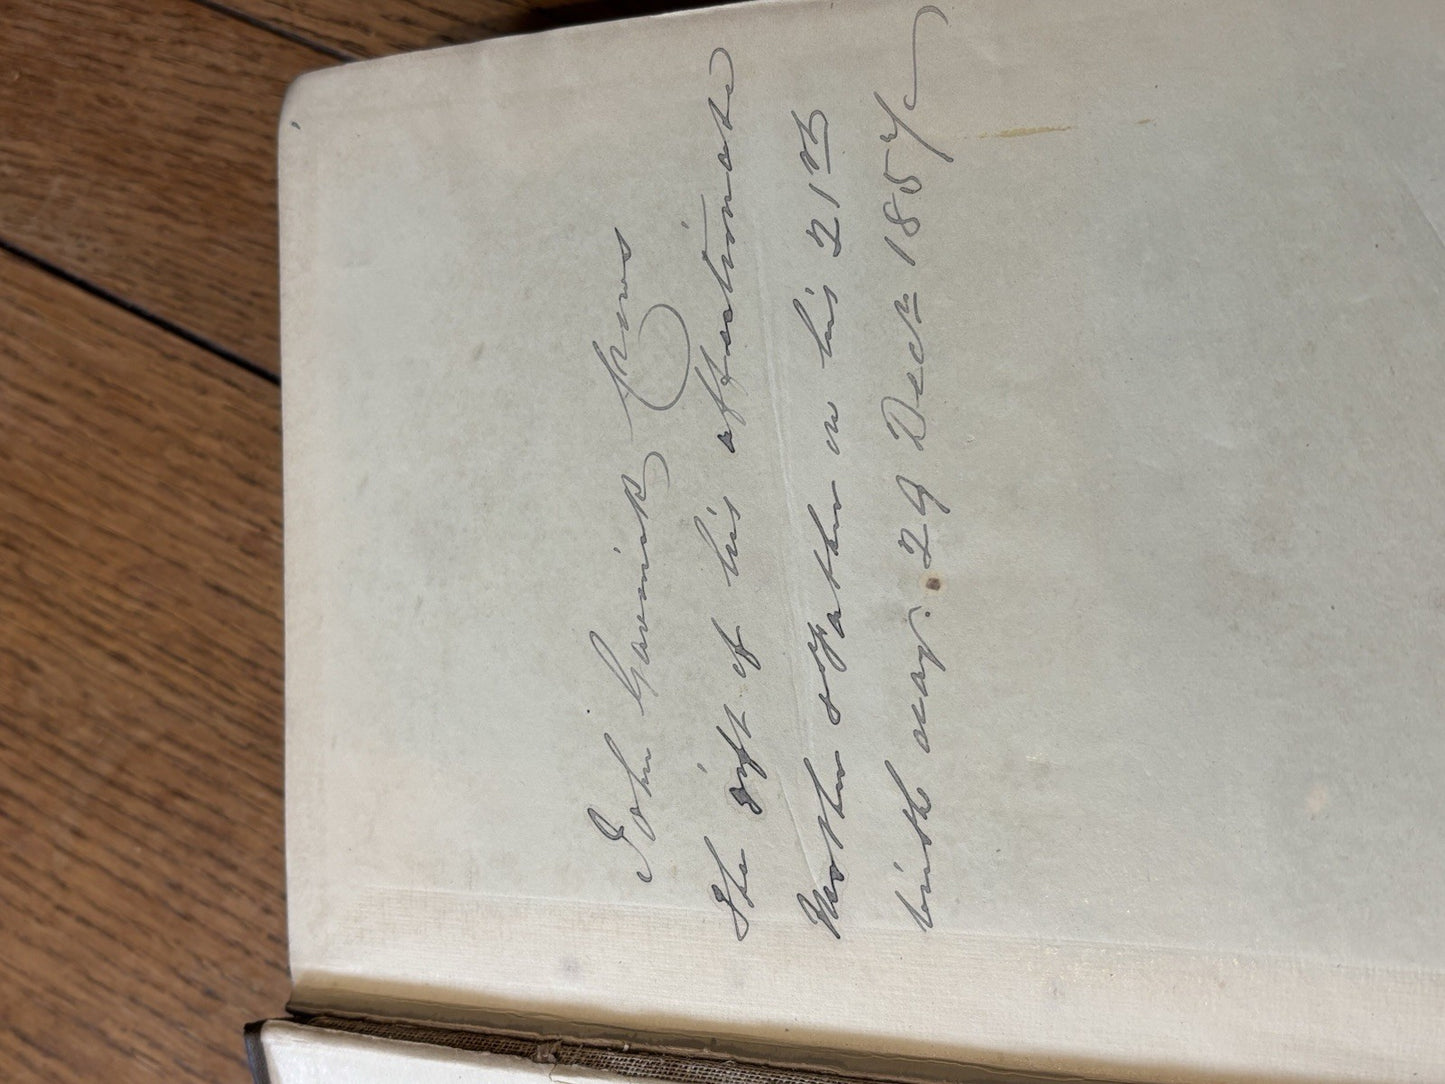 John
The Gift of his affectionate
Mother & father on his 21st
birth day. 29 Decr 1857